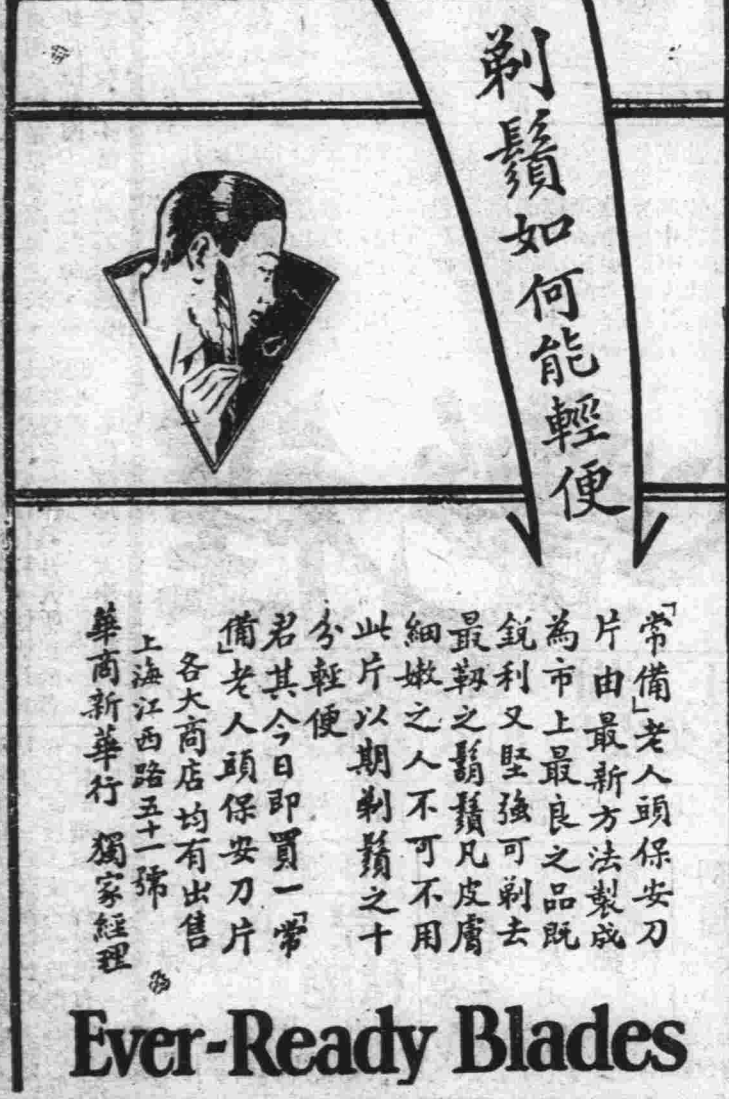 剃鬚如何能輕便
「常備」老人頭保安刀
片由最新方法製成
為市上最良之品既
銳利又堅強可剃去
最韌之鬍鬚凡皮膚
細嫩之人不可不用
此片以期剃鬚之十
分輕便
君其今日即買一「常
備」老人頭保安刀片
各大商店均有出售
上海江西路五十一號
華商新華行 獨家經理
Ever-Ready Blades